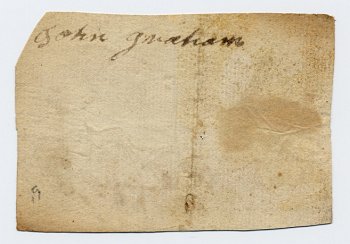 John Graham